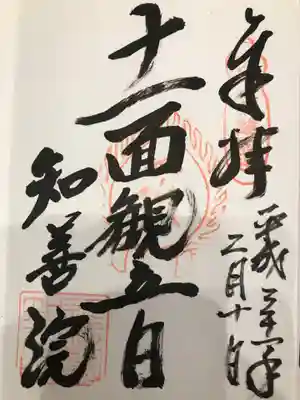 奉拝
平成年
二月十日
十一面観音
知善院